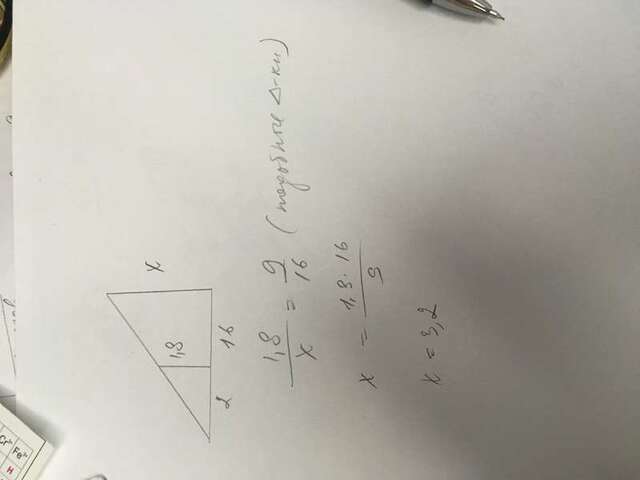 x
1,8
2 16
1,8/x = 9/16 (подобные Δ-ки)
x = 1,8·16/9
x = 3,2
Fe²⁺
H